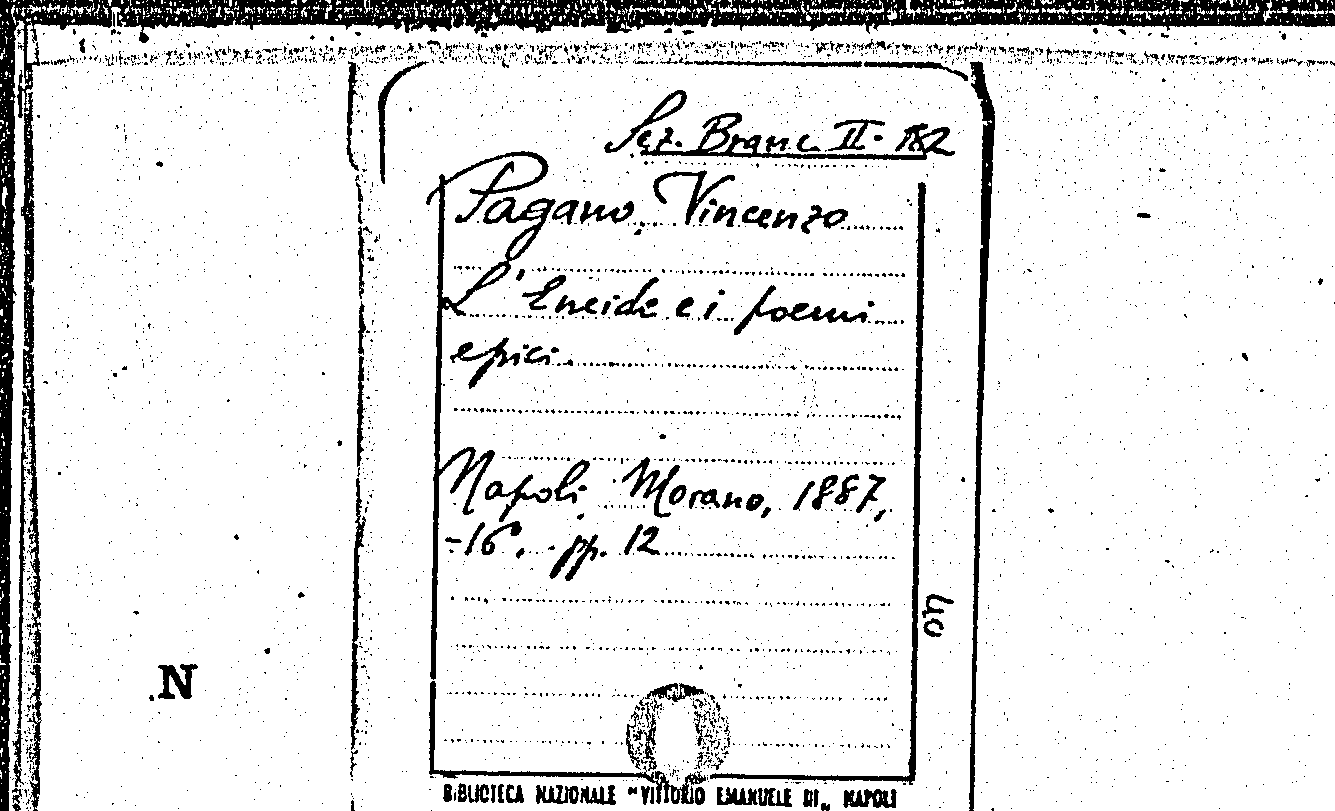 Sez. Branc. II. 182
Pagano, Vincenzo
L'Eneide e i poemi
epici.
Napoli, Morano, 1887,
-16°. pp. 12
40
N
BIBLIOTECA NAZIONALE "VITTORIO EMANUELE III„ NAPOLI